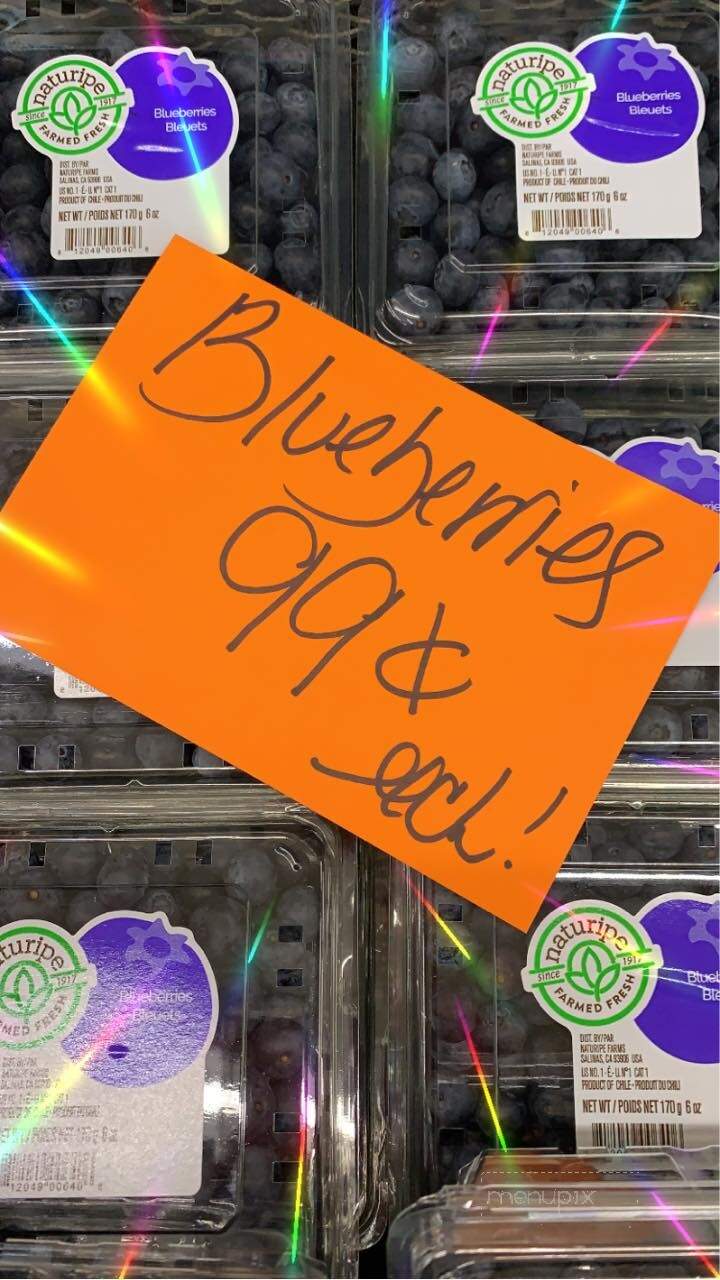 naturipe
since 1917
FARMED FRESH
Blueberries
Bleuets
DIST. BY/PAR
NATURIPE FARMS
SALINAS, CA 93908 USA
US NO. 1 - É.-U. Nº1 CAT 1
PRODUCT OF CHILE • PRODUIT DU CHILI
NET WT / POIDS NET 170 g 6 oz
8 12049 00640 6
naturipe
since 1917
FARMED FRESH
Blueberries
Bleuets
DIST. BY/PAR
NATURIPE FARMS
SALINAS, CA 93908 USA
US NO. 1 - É.-U. Nº1 CAT 1
PRODUCT OF CHILE • PRODUIT DU CHILI
NET WT / POIDS NET 170 g 6 oz
8 12049 00640 6
Blueberries
99¢
each!
turipe
1917
MED FRESH
Blueberries
Bleuets
12049 00640
naturipe
since 1917
FARMED FRESH
Blueb
Ble
DIST. BY/PAR
NATURIPE FARMS
SALINAS, CA 93908 USA
US NO. 1 - É.-U. Nº1 CAT 1
PRODUCT OF CHILE - PRODUIT DU CHILI
NET WT / POIDS NET 170 g 6 oz
menupix